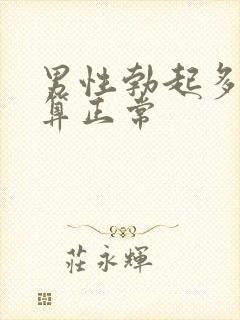 男性勃起多
算正常
莊永輝